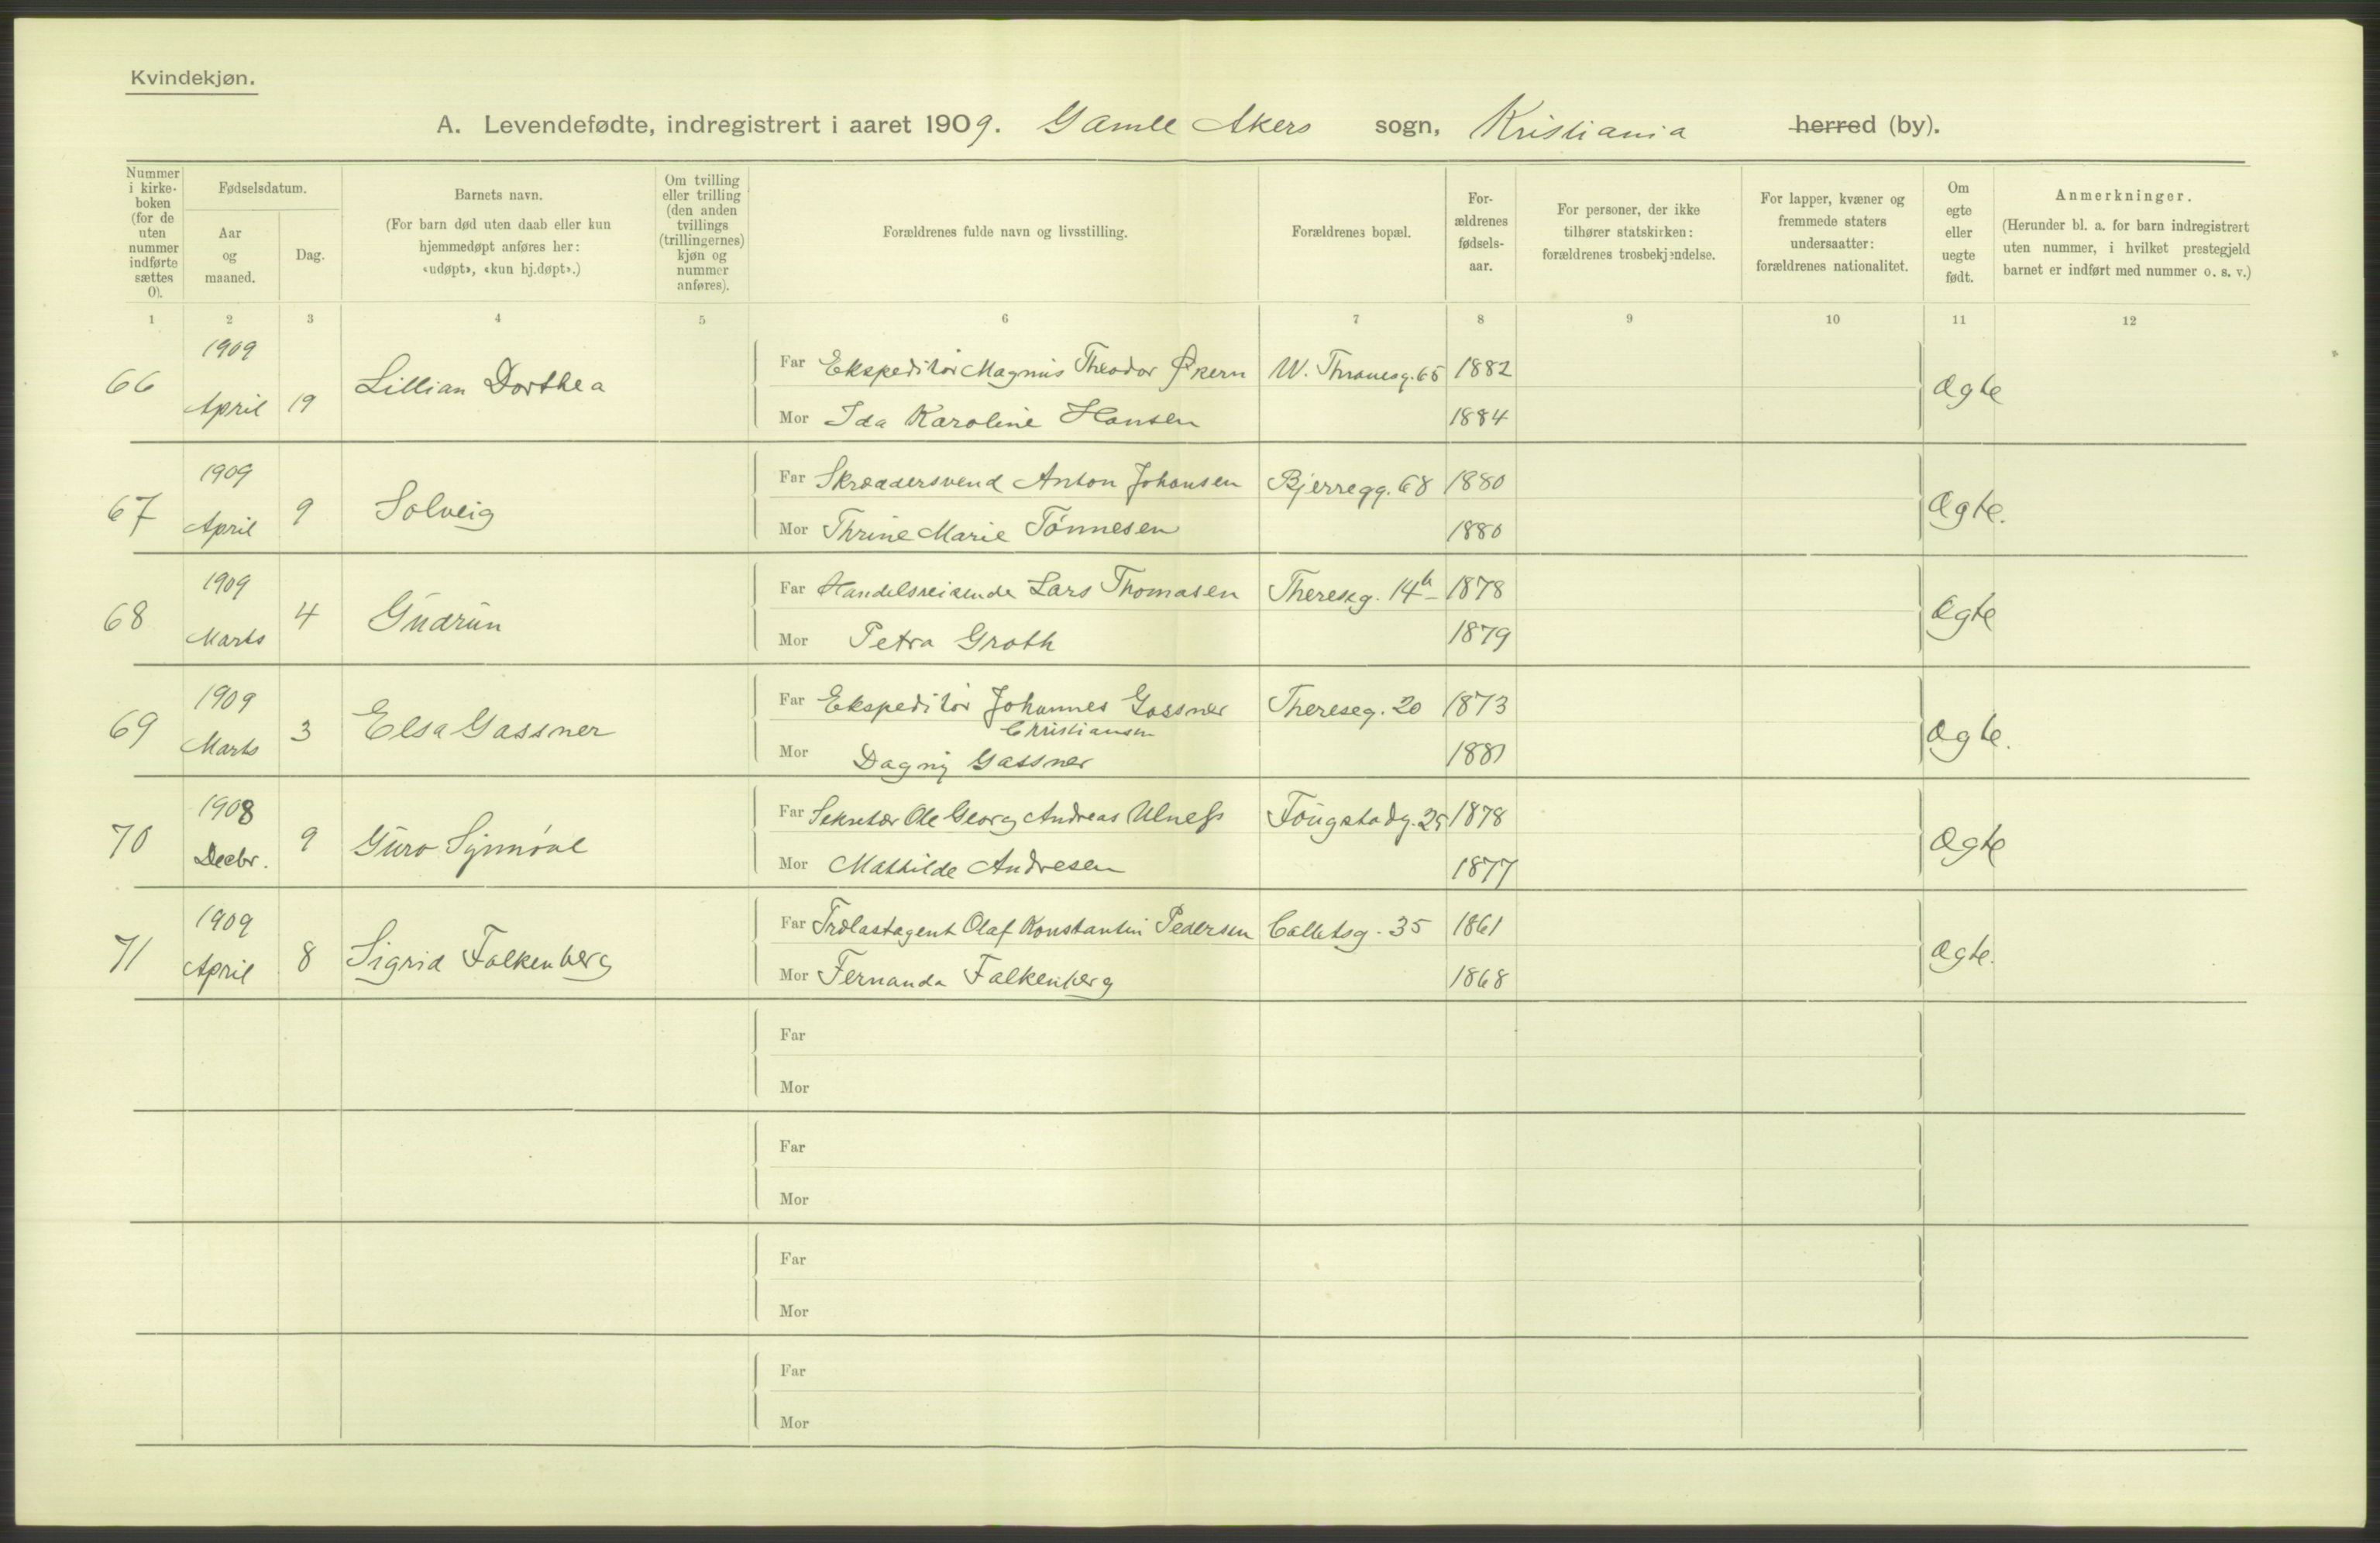 Kvindekjøn.
A. Levendefødte, indregistrert i aaret 1909. Gamle Akers sogn, Kristiania herred (by).
Nummer i kirkeboken (for de uten nummer indførte sættes 0).
Fødselsdatum.
Aar og maaned.
Dag.
Barnets navn.
(For barn død uten daab eller kun hjemmedøpt anføres her: «udøpt», «kun hj.døpt».)
Om tvilling eller trilling (den anden tvillings (trillingernes) kjøn og nummer anføres).
Forældrenes fulde navn og livsstilling.
Forældrenes bopæl.
For-ældrenes fødsels-aar.
For personer, der ikke tilhører statskirken: forældrenes trosbekjendelse.
For lapper, kvæner og fremmede staters undersaatter: forældrenes nationalitet.
Om egte eller uegte født.
Anmerkninger.
(Herunder bl. a. for barn indregistrert uten nummer, i hvilket prestegjeld barnet er indført med nummer o. s. v.)
1 2 3 4 5 6 7 8 9 10 11 12
66 1909 April 19 Lillian Dorthea
Far Ekspeditør Magnus Theodor Økern W. Thranesg. 65 1882
Mor Ida Karoline Hansen 1884
Ægte
67 1909 April 9 Solveig
Far Skræddersvend Anton Johansen Bjerregg. 68 1880
Mor Thrine Marie Tønnesen 1880
Ægte.
68 1909 Marts 4 Gudrun
Far Handelsreisende Lars Thomasen Theresg. 14b 1878
Mor Petra Groth 1879
Ægte
69 1909 Marts 3 Elsa Gassner
Far Ekspeditør Johannes Gassner Thereseg. 20 1873
Christiansen
Mor Dagny Gassner 1881
Ægte.
70 1908 Decbr. 9 Guro Synnøve
Far Sekretær Ole Georg Andreas Ulness Fougstadg. 25 1878
Mor Mathilde Andresen 1877
Ægte
71 1909 April 8 Sigrid Falkenberg
Far Trælastagent Olaf Konstantin Pedersen Colletsg. 35 1861
Mor Fernanda Falkenberg 1868
Ægte.
Far
Mor
Far
Mor
Far
Mor
Far
Mor